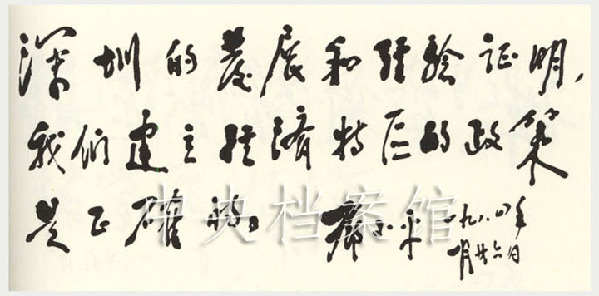 深圳的发展和经验证明，
我们建立经济特区的政策
是正确的。
邓小平
一九八四年
一月廿六日
中央档案馆